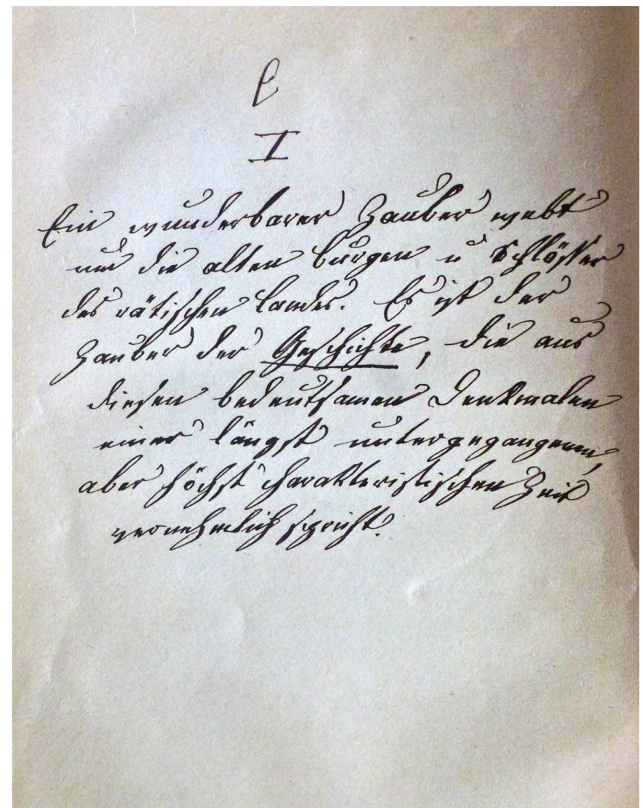 I
Ein wunderbarer Zauber webt
um die alten Burgen u. Schlösser
des rätischen Landes. Es ist der
Zauber der Geschichte, die aus
diesen bedeutsamen Denkmalen
einer längst untergegangenen,
aber höchst charakteristischen Zeit
vernehmlich spricht.